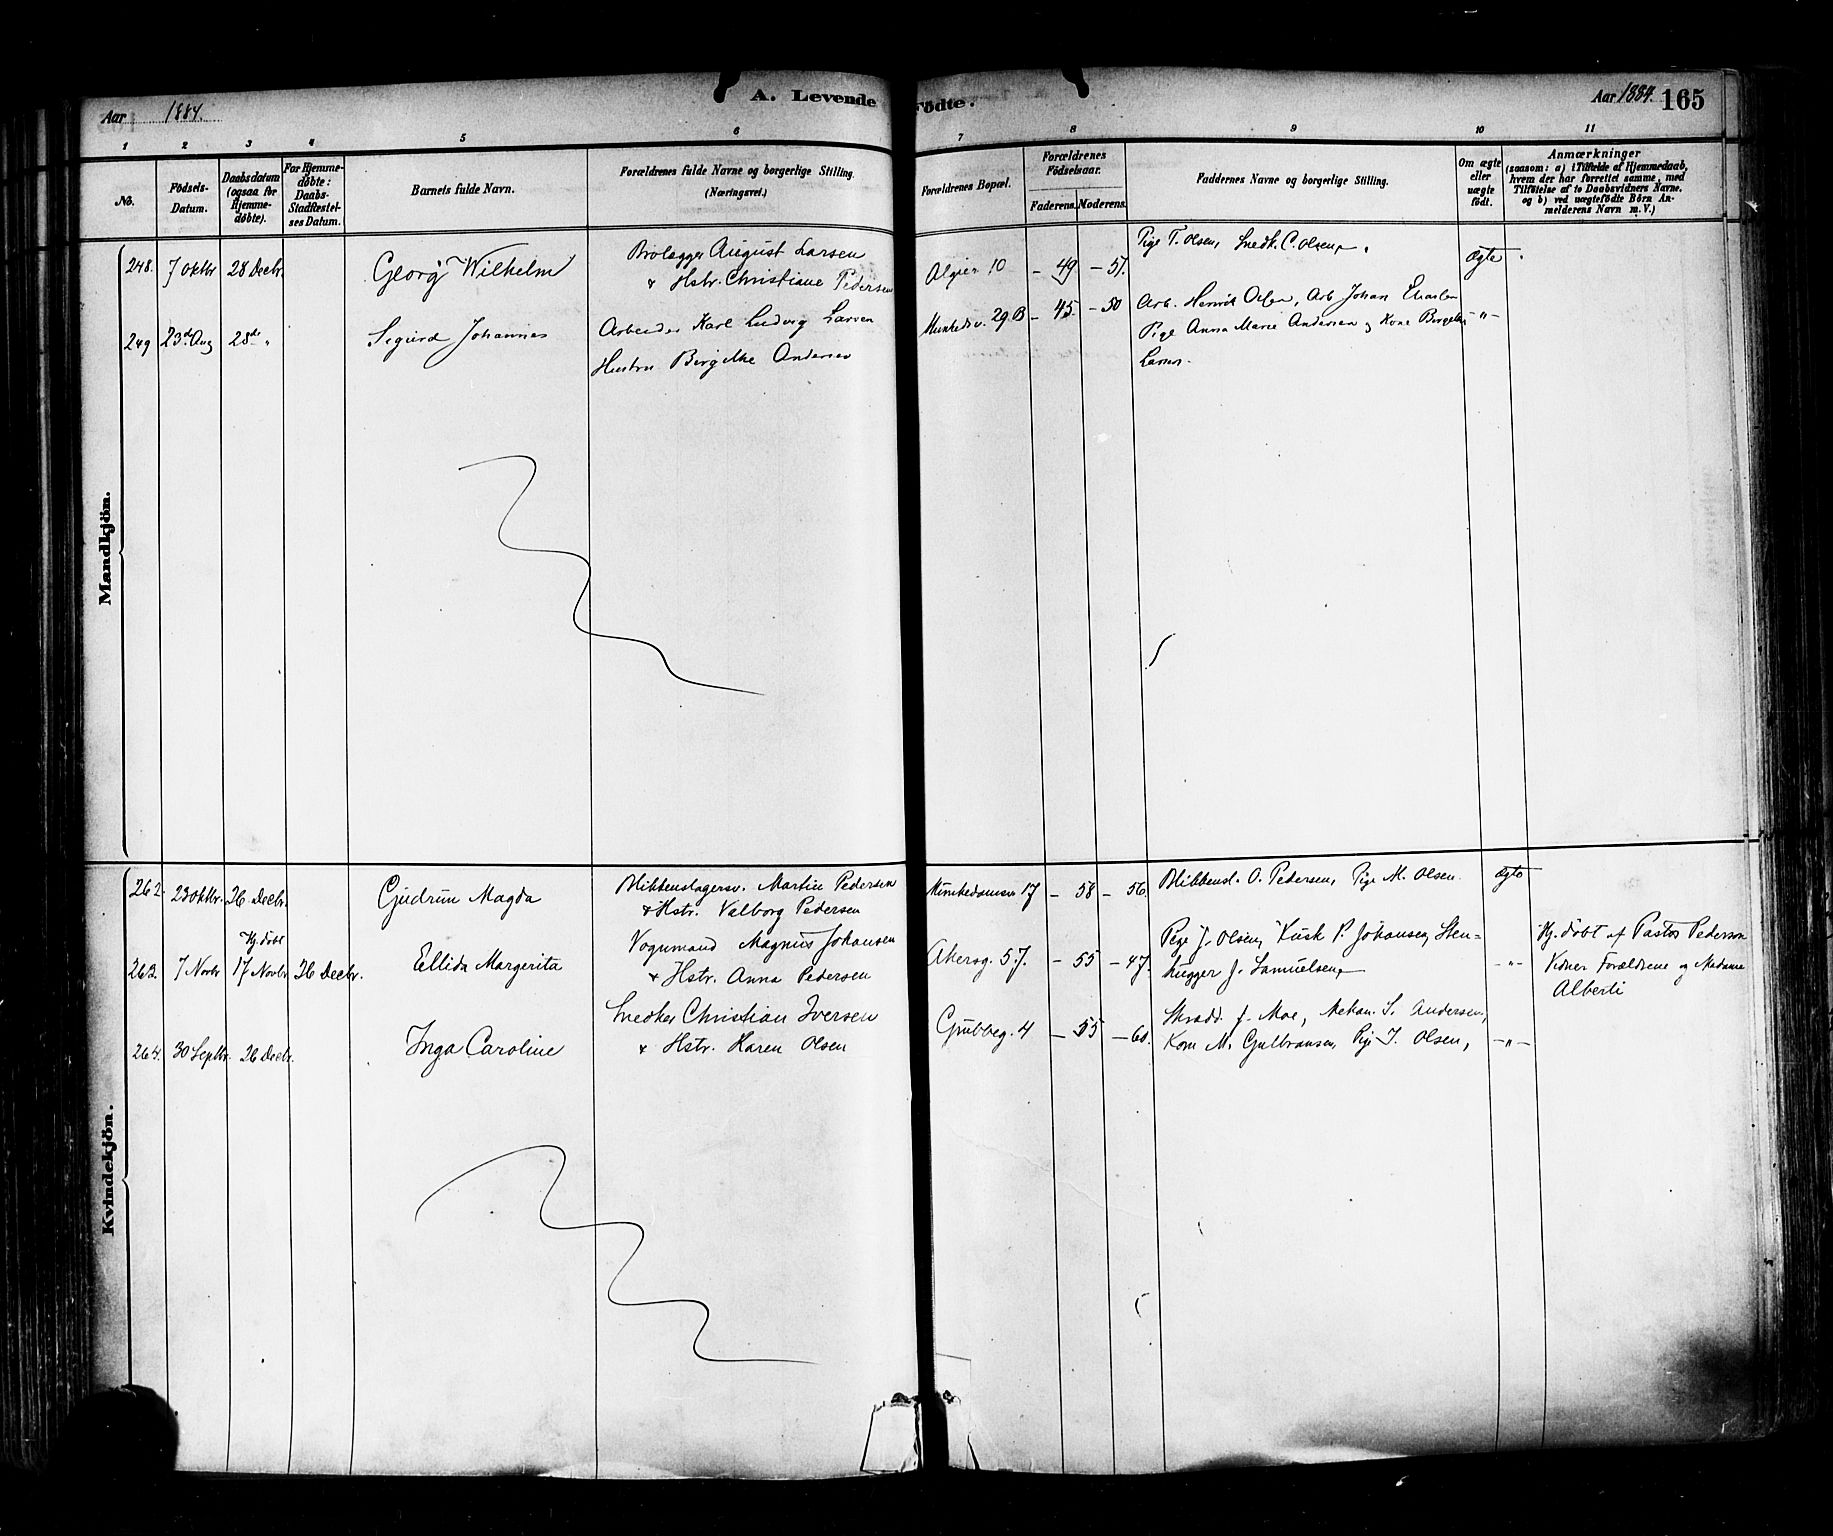 Aar 1884.
A. Levende Födte.
Aar 1884. 165
1 2 3 4 5 6 7 8 9 10 11
No.
Födsels-Datum.
Daabsdatum (ogsaa for Hjemme-döbte).
For Hjemme-döbte: Daabs-Stadfæstel-ses Datum.
Barnets fulde Navn.
Forældrenes fulde Navne og borgerlige Stilling. (Næringsvei.)
Forældrenes Bopæl.
Forældrenes Födselsaar.
Faderens. Moderens.
Faddernes Navne og borgerlige Stilling.
Om ægte eller uægte födt.
Anmærkninger
(saasom: a) i Tilfælde af Hjemmedaab,
hvem der har forrettet samme, med
Tilföielse af to Daabsvidners Navne.
og b) ved uægtefödte Börn An-
melderens Navn m.V.)
Mandkjön.
248. 7 Oktbr 28 Decbr. Georg Wilhelm
Brolægger August Larsen
& Hstr. Christiane Pedersen
Algier 10 – 49 – 57.
Pige T. Olsen, Snedk. C. Olsen,
Ægte
249 23de Aug 28de " Sigurd Johannes
Arbeider Karl Ludvig Larsen
Hustru Birgitte Andersen
Munkedv. 29 B – 45 – 50
Arb. Henrik Olsen, Arb Johan
Pige Anna Marie Andersen og Kone
Larsen.
–"–
Kvindekjön.
262. 23 Oktbr. 26 Decbr. Gudrun Magda
Blikkenslagersv. Martin Pedersen
& Hstr. Valborg Pedersen
Munkedamsv. 17 – 58 – 56.
Blikkensl. O. Pedersen, Pige M. Olsen.
Ægte
263. 7 Novbr Hj. döbt 17 Novbr 26 Decbr. Ellida Margerita
Vognmand Magnus Johansen
& Hstr. Anna Pedersen
Akersg. 57. – 55 – 47.
Pige J. Olsen, Kusk P. Johansen, Sten=
hugger J. Samuelsen,
–"–
Hj. döbt af Pastor Pedersen
Vidner Forældrene og Madame
Alberti
264. 30 Septbr. 26 Decbr. Inga Caroline
Snedker Christian Iversen
& Hstr. Karen Olsen
Grubbeg. 4 – 55 – 60.
Skradd. J. Moe, Mekan. S. Andersen,
Kone M. Gulbransen, Pige J. Olsen,
–"–